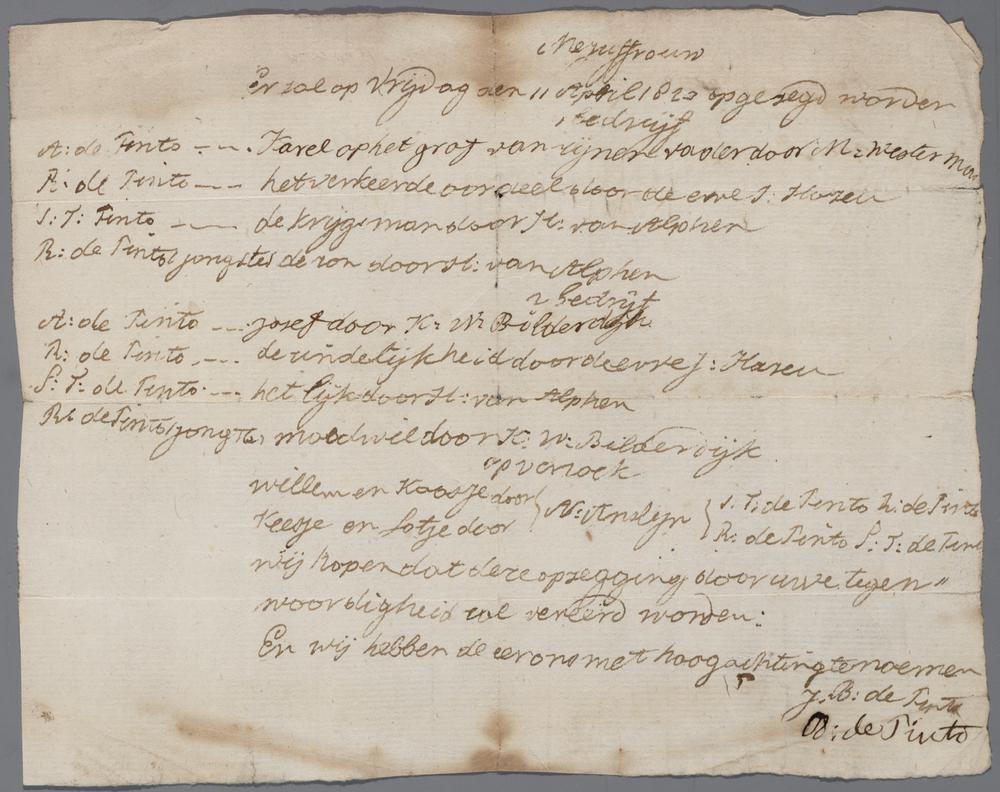 Mejuffrouw
Er zal op Vrijdag den 11 April 1823 opgezegd worden
1 bedrijf
A: de Pinto - - - Karel op het graf van zijnen vader door M: Westerman
R: de Pinto - - - het verkeerde oordeel door de erve J: Hazeu
S: T: Pinto - - - de krijgsman door H: van Alphen
R: de Pinto (jongste) de zon door H: van Alphen
2 bedrijf
A: de Pinto - - - Josef door K: W: Bilderdijk
R: de Pinto - - - de eindelijkheid door de erve J: Hazeu
S: T: de Pinto - - - het lijk door H: van Alphen
R: de Pinto (jongste) moedwil door K: W: Bilderdijk
op verzoek
willem en Koosje door } N: Anslijn { S. T: de Pinto R: de Pinto
Keesje en Lotje door R: de Pinto S: T: de Pint
wij hopen dat deze opzegging door uwe tegen"
woordigheid zal vereerd worden:
En wij hebben de eer ons met hoogachting te noemen
J. B: de Pinto
B: de Pinto